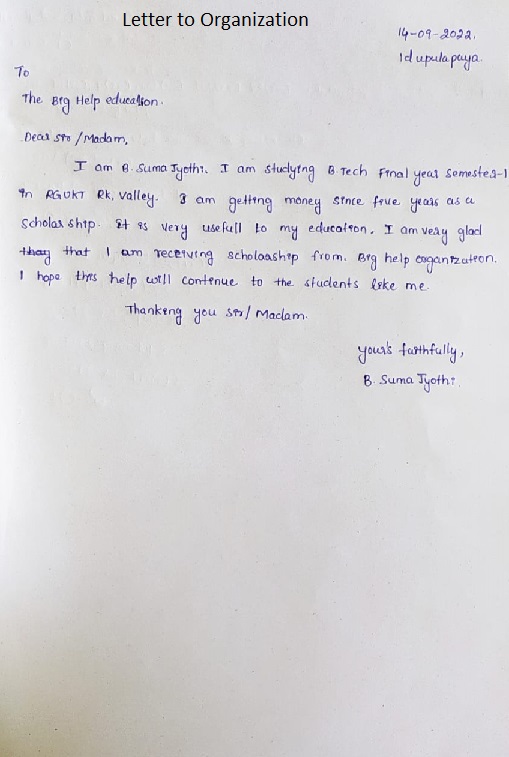 Letter to Organization
14-09-2022.
Idupulapaya.
To
The Big Help education.
Dear sir / Madam,
I am B. Suma Jyothi. I am studying B Tech Final year Semester-1
in RGUKT RK. Valley. I am getting money since five years as a
scholarship. It is very usefull to my education. I am very glad
that I am receiving scholaoship from. Big help organization.
I hope this help will continue to the students like me.
Thanking you sir/ Madam.
your's faithfully,
B. Suma Jyothi.